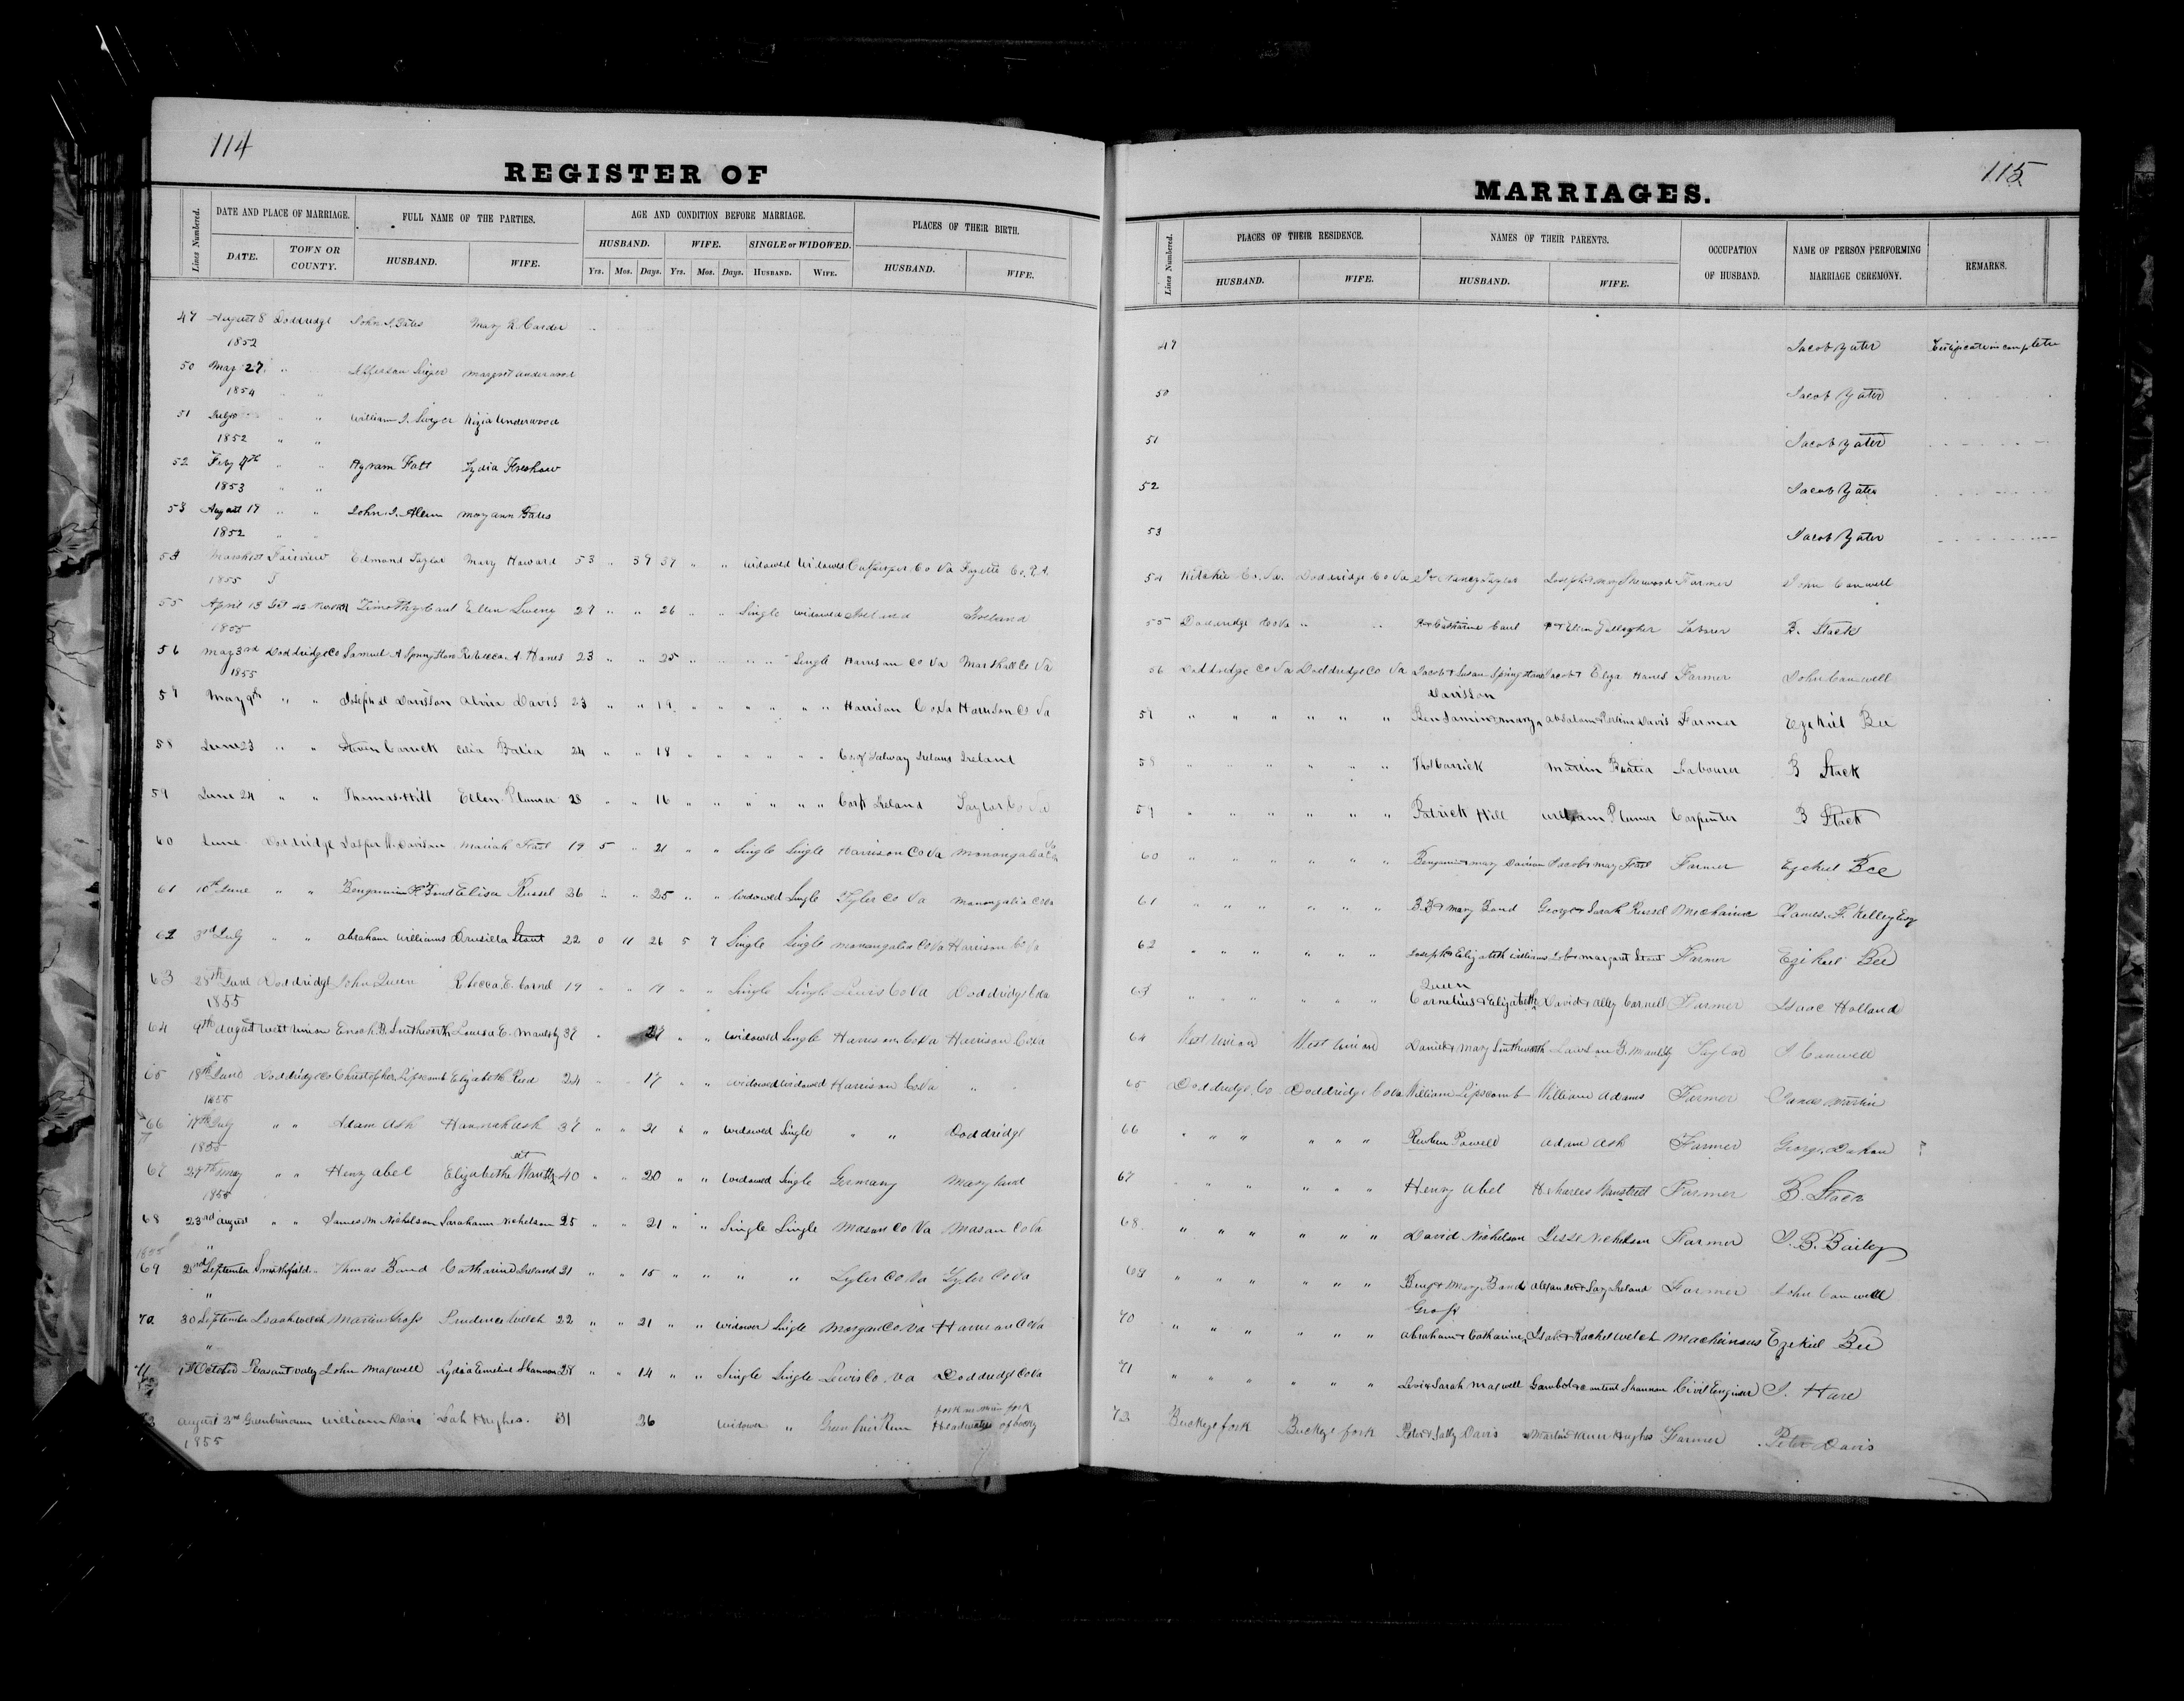 114
REGISTER OF
Lines Numbered.
DATE AND PLACE OF MARRIAGE.
FULL NAME OF THE PARTIES.
AGE AND CONDITION BEFORE MARRIAGE.
PLACES OF THEIR BIRTH.
DATE.
TOWN OR COUNTY.
HUSBAND.
WIFE.
HUSBAND.
WIFE.
SINGLE or WIDOWED.
HUSBAND.
WIFE.
Yrs. Mos. Days. Yrs. Mos. Days. HUSBAND. WIFE.
47 August 8 Doddridge John S. Bates Mary R. Carder
1852
50 May 27 " Jefferson Margret Underwood
1854 " "
51 " " William J. Kizia Underwood
1852 " "
52 Feby 4th " " Hyram Fatt Lydia
1853 " "
53 August 19 " " John. J. Allen Mary ann Gates
1852 " "
54 Fairview Edmond Taylor Mary Howard 53 " 39 37 " " widowed widowed Culpeper Co Va Fayette Co. P.A.
1855
55 April 13 Timothy Caul Ellen Sweny 27 " " 26 " " Single widowed Ireland Ireland
1855
56 May 3rd Doddridge Co Samuel A Springston Rebecca. A. Hanes 23 " " 25 " " " " Single Harrison Co Va Marshall Co Va
1855
57 May 9th " " Joseph Davisson Alvira Davis 23 " " 19 " " " " " " Harrison Co Va Harrison Co Va
58 June 23 " " Steven Carrick Celia Batia 24 " " 18 " " " " " " Co of Galway Ireland Ireland
59 June 24 " " Thomas Hill Ellen Plumer 28 " " 16 " " " " " " Cork Ireland Taylor Co Va
60 June Doddridge Jasper N. Davison Mariah 19 5 " 21 " " Single Single Harrison Co Va Monongalia Co Va
61 10th June " " Bengamin F. Bond Elisa Russel 36 " " 25 " " widowed Single Tyler Co Va Monongalia Co Va
62 3rd July " " Abraham Williams Drusilla Stout 22 0 11 26 5 7 Single Single Monongalia Co Va Harrison Co Va
63 28th June Doddridge John Queen Rebecca E. Cornel 19 " " 19 " " Single Single Lewis Co Va Doddridge Co Va
1855
64 9th August West Union Enoch B. Smithworth Louisa E. Maulsby 37 " " widowed Single Harrison Co Va Harrison Co Va
65 18th June Doddridge Co Christopher Lipscomb Elizabeth Reed 24 " 17 " " widowed widowed Harrison Co Va " "
1855
66 17th July " " Adam Ash Hannah Ash 37 " " 21 " " widowed Single " " Doddridge
1855
67 29th May " " Henry Abel Elizabeth 40 " " 20 " " widowed Single Germany Maryland
1855
68 23rd August " " James M. Nichelson Sarahann Nichelson 25 " " 21 " " Single Single Mason Co Va Mason Co Va
1855 "
69 2nd September Smithfield Thomas Band Catharine Ireland 21 " " 15 " " " " Tyler Co Va Tyler Co Va
"
70 30 September Isaah Welch Martin Gross Prudence Welch 22 " " 21 " " widower Single Morgan Co Va Harrison Co Va
"
71 1st October Pleasant Valey John Maxwell Lydia Emeline Shannon 28 " " 14 " " Single Single Lewis Co. Va Doddridge Co Va
August 3rd Greenbrierrun William Davis Hughes. 31 26 widower " Greenbrier Run Headwaters
1855
115
MARRIAGES.
Lines Numbered.
PLACES OF THEIR RESIDENCE.
NAMES OF THEIR PARENTS.
OCCUPATION OF HUSBAND.
NAME OF PERSON PERFORMING MARRIAGE CEREMONY.
REMARKS.
HUSBAND.
WIFE.
HUSBAND.
WIFE.
47 Jacob Yater Certificate incomplete
50 Jacob Yater
51 Jacob Yater
52 Jacob Yater
53 Jacob Yater
54 Ritchie Co. Va. Doddridge Co Va Nancy Taylor Joseph & Mary Sherwood Farmer John Canwell
55 Doddridge Co Va " " & Catharine Caul & Ellen Gallagher Laborer B. Stack
56 Doddridge Co Va Doddridge Co Va Jacob & Susan Springston Jacob & Eliza Hanes Farmer John Canwell
Davisson
57 " " " " " " Benjamin & Mary Absalam & Davis Farmer Ezekiel Bee
58 " " " " " " Carrick Martin Labourer B Stack
59 " " " " " " Patrick Hill William Plumer Carpenter B Stack
60 " " " " " " Bengamin & Mary Davison Jacob & Mary Farmer Ezekiel Bee
61 " " " " " " & Mary Bond George & Sarah Russel Mechanick James. F. Kelley Esq
62 " " " " " " Joseph & Elizabeth Williams & Margaret Stout Farmer Ezekiel Bee
Queen
63 " " " " " " Cornelius & Elizabeth David & Alley Cornell Farmer Isaac Holland
64 West Union West Union Daniel & Mary Smithworth B. Maulsby Taylor J. Canwell
65 Doddridge Co Doddridge Co Va William Lipscomb William Adams Farmer James Martin
66 " " " " " " Reuben Powell Adam Ash Farmer George Dakan ?
67 " " " " " " Henry Abel Charles Farmer B. Stack
68 " " " " " " David Nichelson Jesse Nichelson Farmer J. B. Bailey
69 " " " " " " Benj & Mary Band Alexander & Ireland Farmer John Canwell
Gross
70 " " " " " " Abraham & Catharine Isah & Rachel Welch Ezekiel Bee
71 " " " " " " Levi & Sarah Maxwell Shannon Civil Engineer J. Hare
73 Buckeye fork Buckeye fork Peter & Sally Davis Hughes Farmer Peter Davis